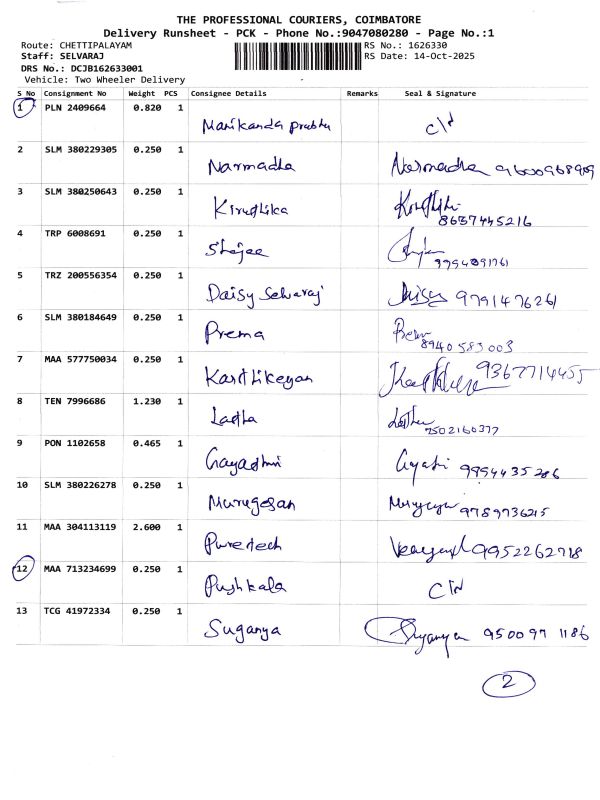 THE PROFESSIONAL COURIERS, COIMBATORE
Delivery Runsheet - PCK - Phone No.:9047080280 - Page No.:1
Route: CHETTIPALAYAM RS No.: 1626330
Staff: SELVARAJ RS Date: 14-Oct-2025
DRS No.: DCJB162633001
Vehicle: Two Wheeler Delivery
S No Consignment No Weight PCS Consignee Details Remarks Seal & Signature
1 PLN 2409664 0.820 1
Manikanda prabhu
2 SLM 380229305 0.250 1
Narmadha Narmadha 9600968909
3 SLM 380250643 0.250 1
Kiruthika
8637445216
4 TRP 6008691 0.250 1
Shejee
5 TRZ 200556354 0.250 1
Daisy Selvaraj Daisy 9791476261
6 SLM 380184649 0.250 1
Prema
8940583003
7 MAA 577750034 0.250 1
Karthikeyan 9367714455
8 TEN 7996686 1.230 1
Latha
7502160377
9 PON 1102658 0.465 1
Gayadhri 9994435286
10 SLM 380226278 0.250 1
Murugesan 9789736215
11 MAA 304113119 2.600 1
Puretech 9952262718
12 MAA 713234699 0.250 1
Pushkala
13 TCG 41972334 0.250 1
Suganya 950097 1186
2